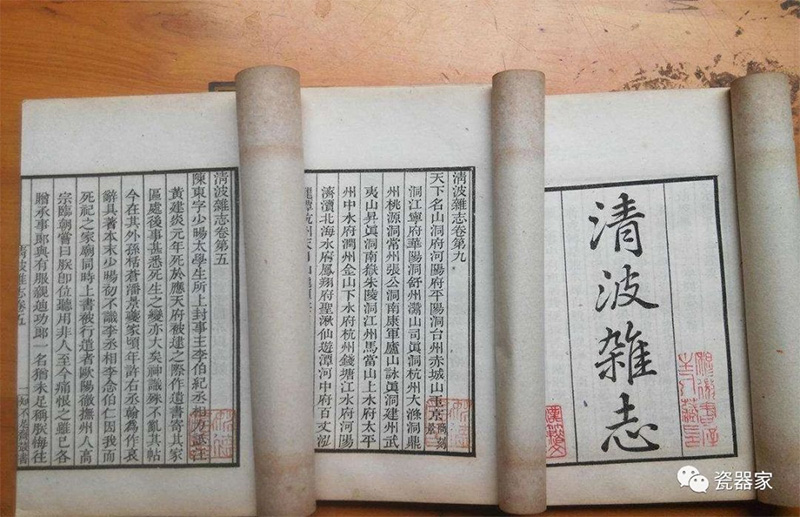 清波雑志
清波雜志卷第九
天下名山洞府河陽府平陽洞台州赤城山玉京
洞江寧府華陽洞舒州灊山司眞洞杭州大滌洞鼎
州桃源洞常州張公洞南康軍廬山詠眞洞建州武
夷山昇眞洞南嶽朱陵洞江州馬當山上水府太平
州中水府潤州金山下水府杭州錢塘江水府河陽
濟瀆北海水府鳳翔府聖湫仙遊潭河中府百丈泓
清波雜志卷第五
陳東字少暘太學生所上封事主李伯紀丞相力詆汪
黃建炎元年死於應天府被逮之際作遺書寄其家
區處後事甚悉死生之變亦大矣神識殊不亂其帖
今在其外孫栝蒼潘景夔家頃年許右丞翰為作哀
辭具著本末少暘初不識李丞相李念伯仁因我而
死祀之家廟同時上書被行遣者歐陽徹撫州人高
宗臨朝嘗曰朕卽位聽用非人至今痛恨之雖已各
贈承事郎與有服親迪功郎一名猶未足稱朕悔往
清波雜志卷五
知不足齋叢書
瓷器家